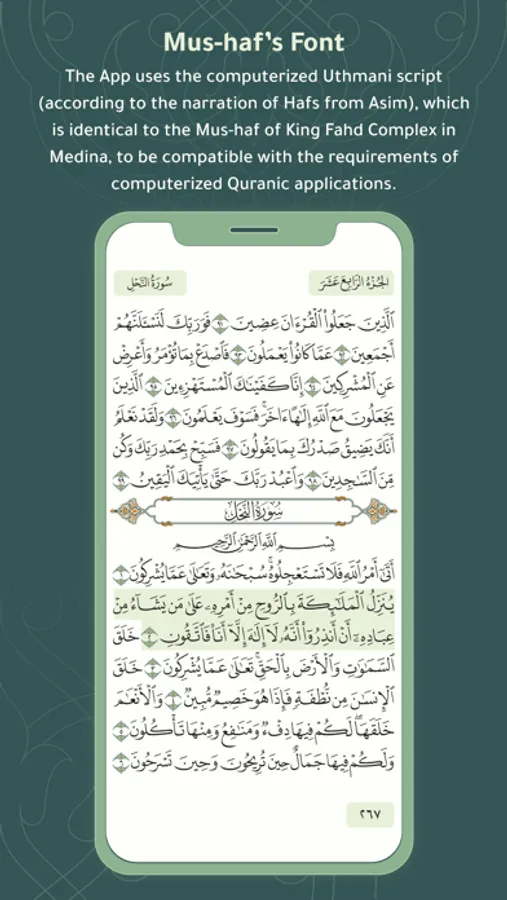 Mus-haf's Font
The App uses the computerized Uthmani script
(according to the narration of Hafs from Asim), which
is identical to the Mus-haf of King Fahd Complex in
Medina, to be compatible with the requirements of
computerized Quranic applications.
الجُزْءُ الرَّابِعَ عَشَرَ
سُورَةُ النَّحْلِ
ٱلَّذِينَ جَعَلُوا۟ ٱلْقُرْءَانَ عِضِينَ ٩١ فَوَرَبِّكَ لَنَسْـَٔلَنَّهُمْ
أَجْمَعِينَ ٩٢ عَمَّا كَانُوا۟ يَعْمَلُونَ ٩٣ فَٱصْدَعْ بِمَا تُؤْمَرُ وَأَعْرِضْ
عَنِ ٱلْمُشْرِكِينَ ٩٤ إِنَّا كَفَيْنَـٰكَ ٱلْمُسْتَهْزِءِينَ ٩٥ ٱلَّذِينَ
يَجْعَلُونَ مَعَ ٱللَّهِ إِلَـٰهًا ءَاخَرَ ۚ فَسَوْفَ يَعْلَمُونَ ٩٦ وَلَقَدْ نَعْلَمُ
أَنَّكَ يَضِيقُ صَدْرُكَ بِمَا يَقُولُونَ ٩٧ فَسَبِّحْ بِحَمْدِ رَبِّكَ وَكُن
مِّنَ ٱلسَّـٰجِدِينَ ٩٨ وَٱعْبُدْ رَبَّكَ حَتَّىٰ يَأْتِيَكَ ٱلْيَقِينُ ٩٩
سُورَةُ النَّحْلِ
بِسْمِ ٱللَّهِ ٱلرَّحْمَـٰنِ ٱلرَّحِيمِ
أَتَىٰٓ أَمْرُ ٱللَّهِ فَلَا تَسْتَعْجِلُوهُ ۚ سُبْحَـٰنَهُۥ وَتَعَـٰلَىٰ عَمَّا يُشْرِكُونَ ١
يُنَزِّلُ ٱلْمَلَـٰٓئِكَةَ بِٱلرُّوحِ مِنْ أَمْرِهِۦ عَلَىٰ مَن يَشَآءُ مِنْ
عِبَادِهِۦٓ أَنْ أَنذِرُوٓا۟ أَنَّهُۥ لَآ إِلَـٰهَ إِلَّآ أَنَا۠ فَٱتَّقُونِ ٢ خَلَقَ
ٱلسَّمَـٰوَٰتِ وَٱلْأَرْضَ بِٱلْحَقِّ ۚ تَعَـٰلَىٰ عَمَّا يُشْرِكُونَ ٣ خَلَقَ
ٱلْإِنسَـٰنَ مِن نُّطْفَةٍ فَإِذَا هُوَ خَصِيمٌ مُّبِينٌ ٤ وَٱلْأَنْعَـٰمَ
خَلَقَهَا ۗ لَكُمْ فِيهَا دِفْءٌ وَمَنَـٰفِعُ وَمِنْهَا تَأْكُلُونَ ٥
وَلَكُمْ فِيهَا جَمَالٌ حِينَ تُرِيحُونَ وَحِينَ تَسْرَحُونَ ٦
٢٦٧